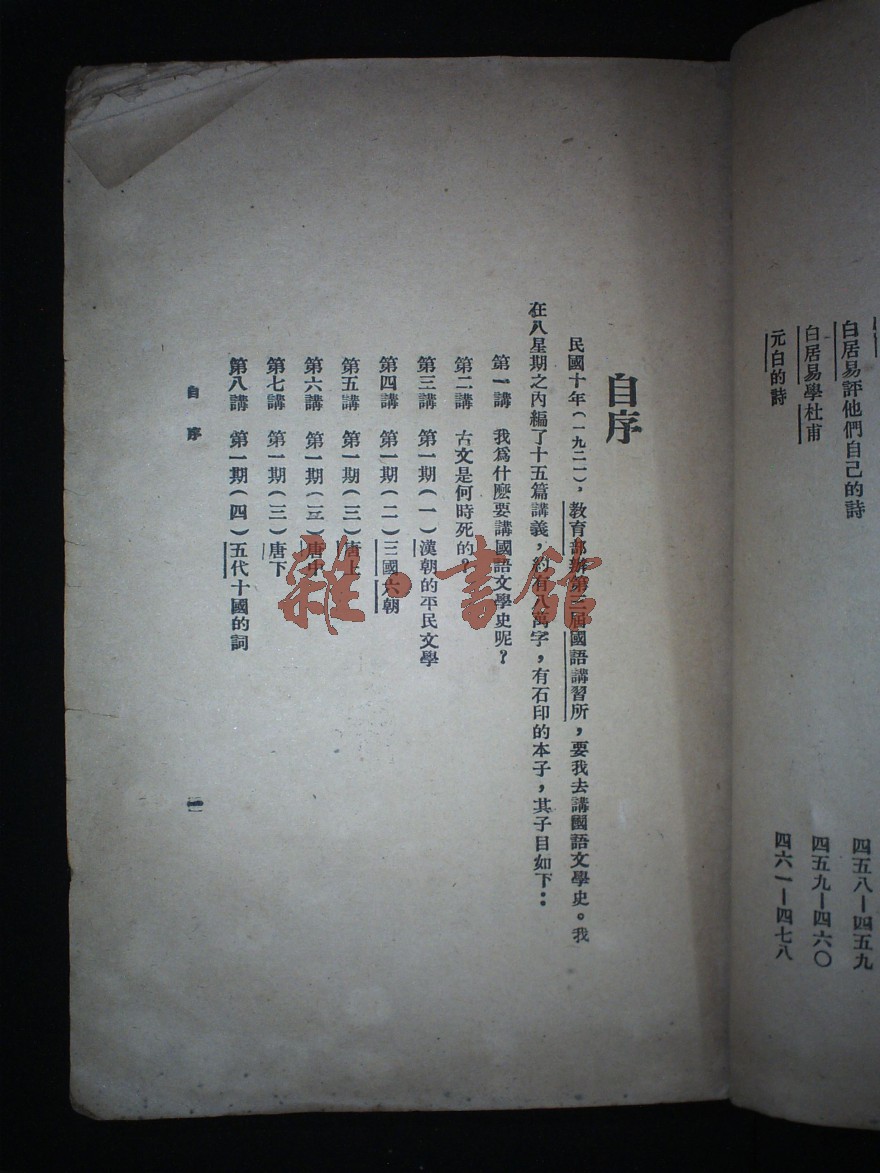 白居易評他們自己的詩 四五八—四五九
白居易學杜甫 四五九—四六〇
元白的詩 四六一—四七八
自序
民國十年(一九二一),教育部辦第三屆國語講習所,要我去講國語文學史。我
在八星期之內編了十五篇講義,約有八萬字,有石印的本子,其子目如下:
第一講 我爲什麽要講國語文學史呢?
第二講 古文是何時死的?
第三講 第一期(一)漢朝的平民文學
第四講 第一期(二)三國六朝
第五講 第一期(三)唐上
第六講 第一期(三)唐中
第七講 第一期(三)唐下
第八講 第一期(四)五代十國的詞
自序
一
雜·書館